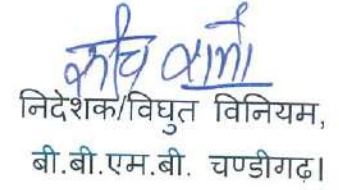 निदेशक/विघुत विनियम,
बी.बी.एम.बी. चण्डीगढ़।